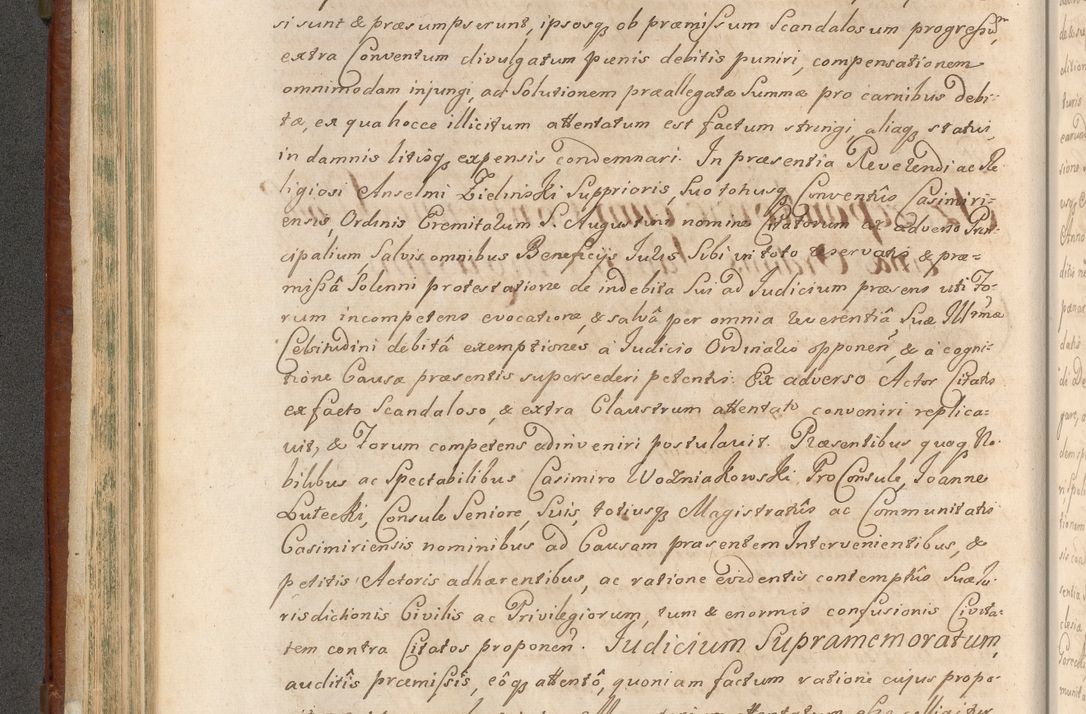 si sunt & præsumpserunt, ipsosq; ob præmissum Scandalosum progressũ,
extra Conventum divulgatum pœnis debitis puniri, compensationem
omnimodam injungi, ad Solutionem præallegatæ Summæ pro carnibus debi-
tæ, ex qua hocce illicitum attentatum est factum stringi, aliaq; statui,
in damnis litisq; expensis condemnari. In præsentia Reverendi ac Re
ligiosi Anselmi Zielinski Supprioris, Suo totiusq; Conventûs Casimiri-
ensis, Ordinis Eremitarum S. Augustini nomine Citatorum ac adverso Prin-
cipalium, Salvis omnibus Beneficijs Juris Sibi in toto reservatis & præ-
missâ Solenni protestatione de indebita Sui ad Judicium præsens uti Fo-
rum incompetens evocatione, & salvâ per omnia reverentiâ Suæ Illrmæ
Celsitudini debitâ exemptiones à Judicio Ordinario opponeñ, & à cogni-
tione Causæ præsentis supersederi petentis. Ex adverso Actor Citatos
ex facto Scandaloso, & extra Claustrum attentato conveniri replica-
vit, & Forum competens adinveniri postulavit. Præsentibus quoq; No-
bilibus ac Spectabilibus Casimiro Wozniakowski, ProConsule, Joanne
Lutecki, Consule Seniore, Suis, totiusq; Magistratûs ac Communitatis
Casimiriensis nominibus ad Causam præsentem Intervenientibus, &
petitis Actoris adhærentibus, ac ratione evidentis contemptûs Suæ Ju-
risdictionis Civilis ac Privilegiorum, tum & enormis confusionis Civita-
tem contra Citatos proponeñ. Judicium Supramemoratum,
auditis præmissis, eôq; attentô, quoniam factum ratione cujus propo-